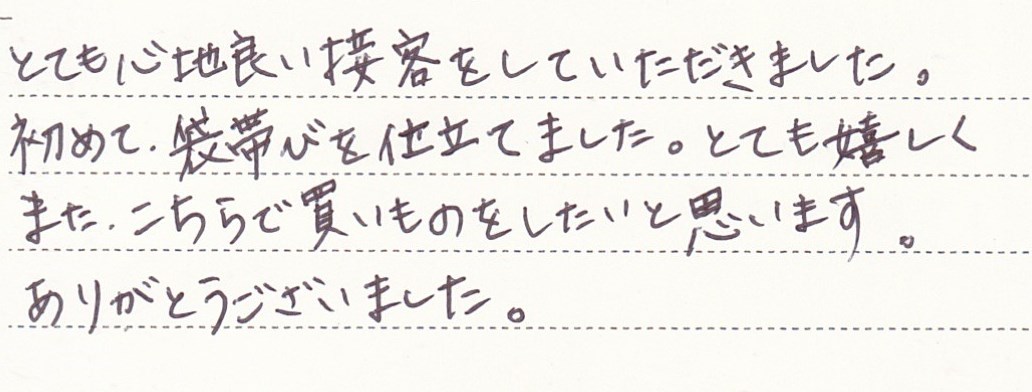 とても心地良い接客をしていただきました。
初めて、袋帯びを仕立てました。とても嬉しく
また、こちらで買いものをしたいと思います。
ありがとうございました。